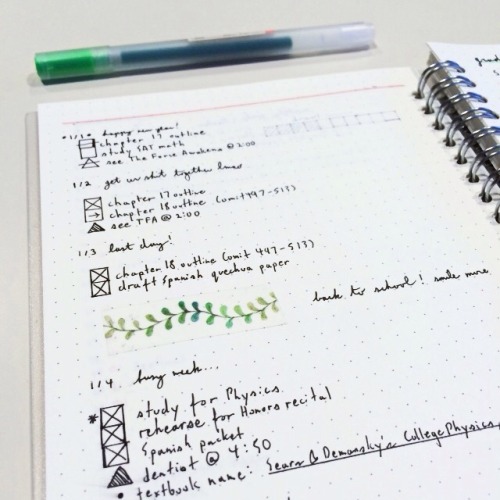 1/1 happy new year!
chapter 17 outline
study SAT math
see The Force Awakens @ 2:00
1/2 get ur shit together
chapter 17 outline
chapter 18 outline (omit 497-513)
see TFA @ 2:00
1/3 last day!
chapter 18 outline (omit 497-513)
draft Spanish quechua paper
back to school! smile more
1/4 busy week...
* study for Physics
rehearse for Honors recital
Spanish packet
dentist @ 4:50
• textbook name: Sears & Demansky's College Physics,